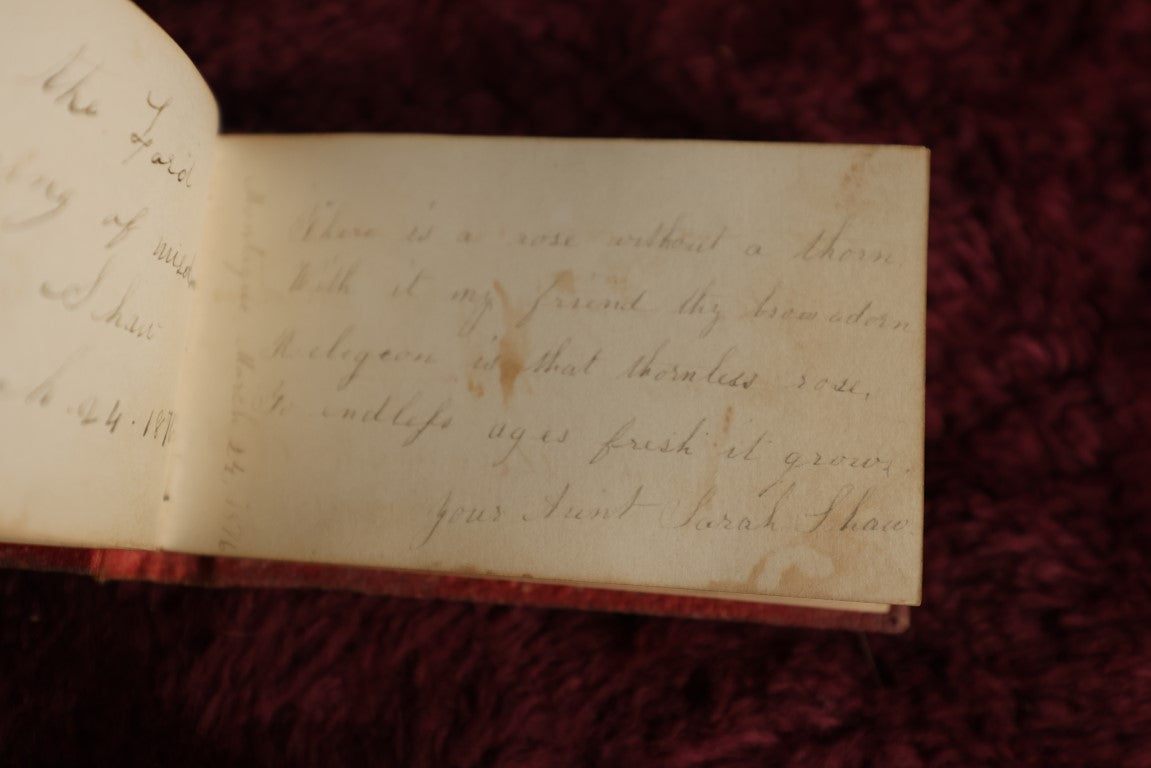 the Lord
of
Shaw
24. 187
There is a rose without a thorn.
With it my friend thy brow adorn
Religeon is that thornless rose,
To endless ages fresh it grows.
your Aunt Sarah Shaw
March 24, 1876